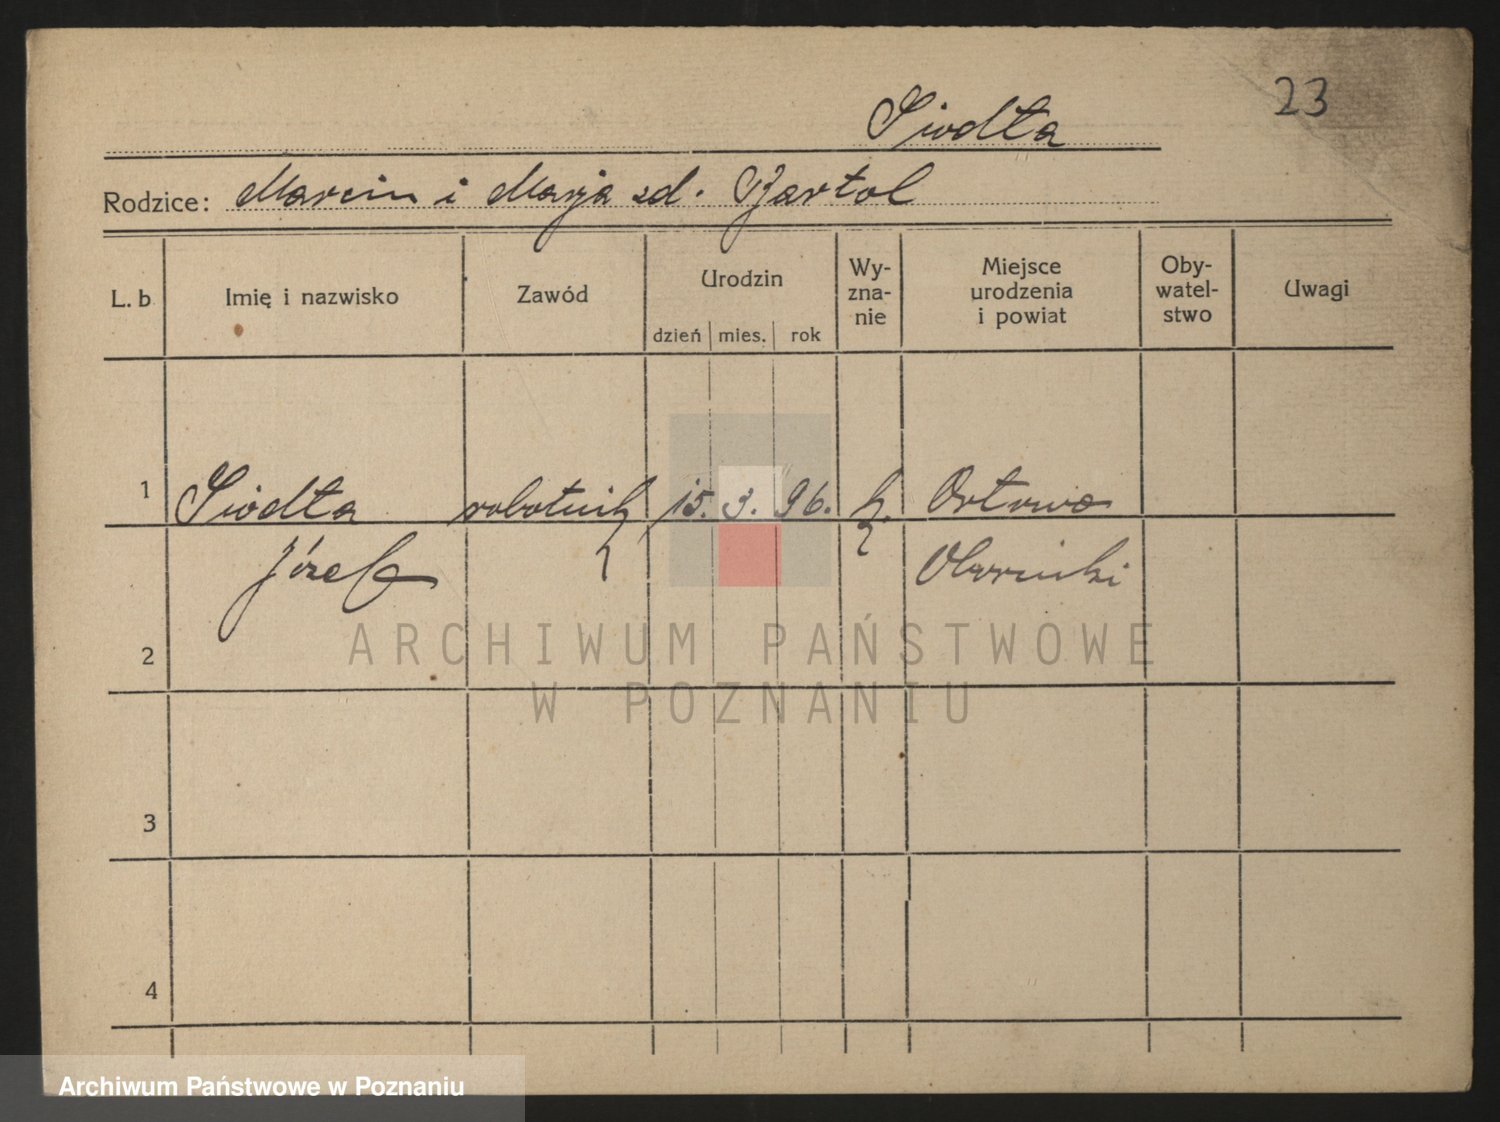 23
Siodła
Rodzice: Marcin i Marja zd. Bartol
L. b Imię i nazwisko Zawód Urodzin dzień mies. rok Wy-zna-nie Miejsce urodzenia i powiat Oby-watel-stwo Uwagi
1 Siodła robotnik 15. 3. 96. k. Ortowo
Józef Obornicki
2
ARCHIWUM PAŃSTWOWE
W POZNANIU
3
4
Archiwum Państwowe w Poznaniu